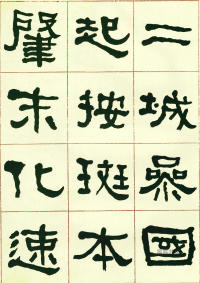 二城國
起按斑本
肇末化速